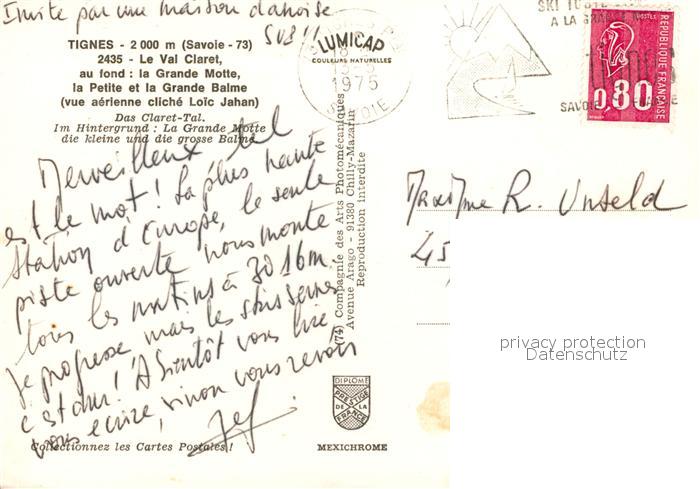 Invité par une maison danoise
SVB !!
TIGNES - 2 000 m (Savoie - 73)
2435 - Le Val Claret,
au fond : la Grande Motte,
la Petite et la Grande Balme
(vue aérienne cliché Loïc Jahan)
Das Claret-Tal.
Im Hintergrund : La Grande Motte
die kleine und die grosse Balme
Merveilleux tel
est le mot ! La plus haute
station d'Europe, la seule
piste ouverte nous monte
tous les matins à 3016m.
Je progresse mais les
c'est dur ! A bientôt vous lire
vous écrire, sinon vous revoir
Jef.
Collectionnez les Cartes Postales !
LUMICAP
COULEURS NATURELLES
(74) Compagnie des Arts Photomécaniques
Avenue Arago - 91380 Chilly-Mazarin
Reproduction interdite
DIPLOME
PRESTIGE
DE LA
FRANCE
MEXICHROME
18
1975
SAVOIE
SKI
A LA
SAVOIE
POSTES
REPUBLIQUE FRANÇAISE
0,80
Madame R. Unseld
45
privacy protection
Datenschutz